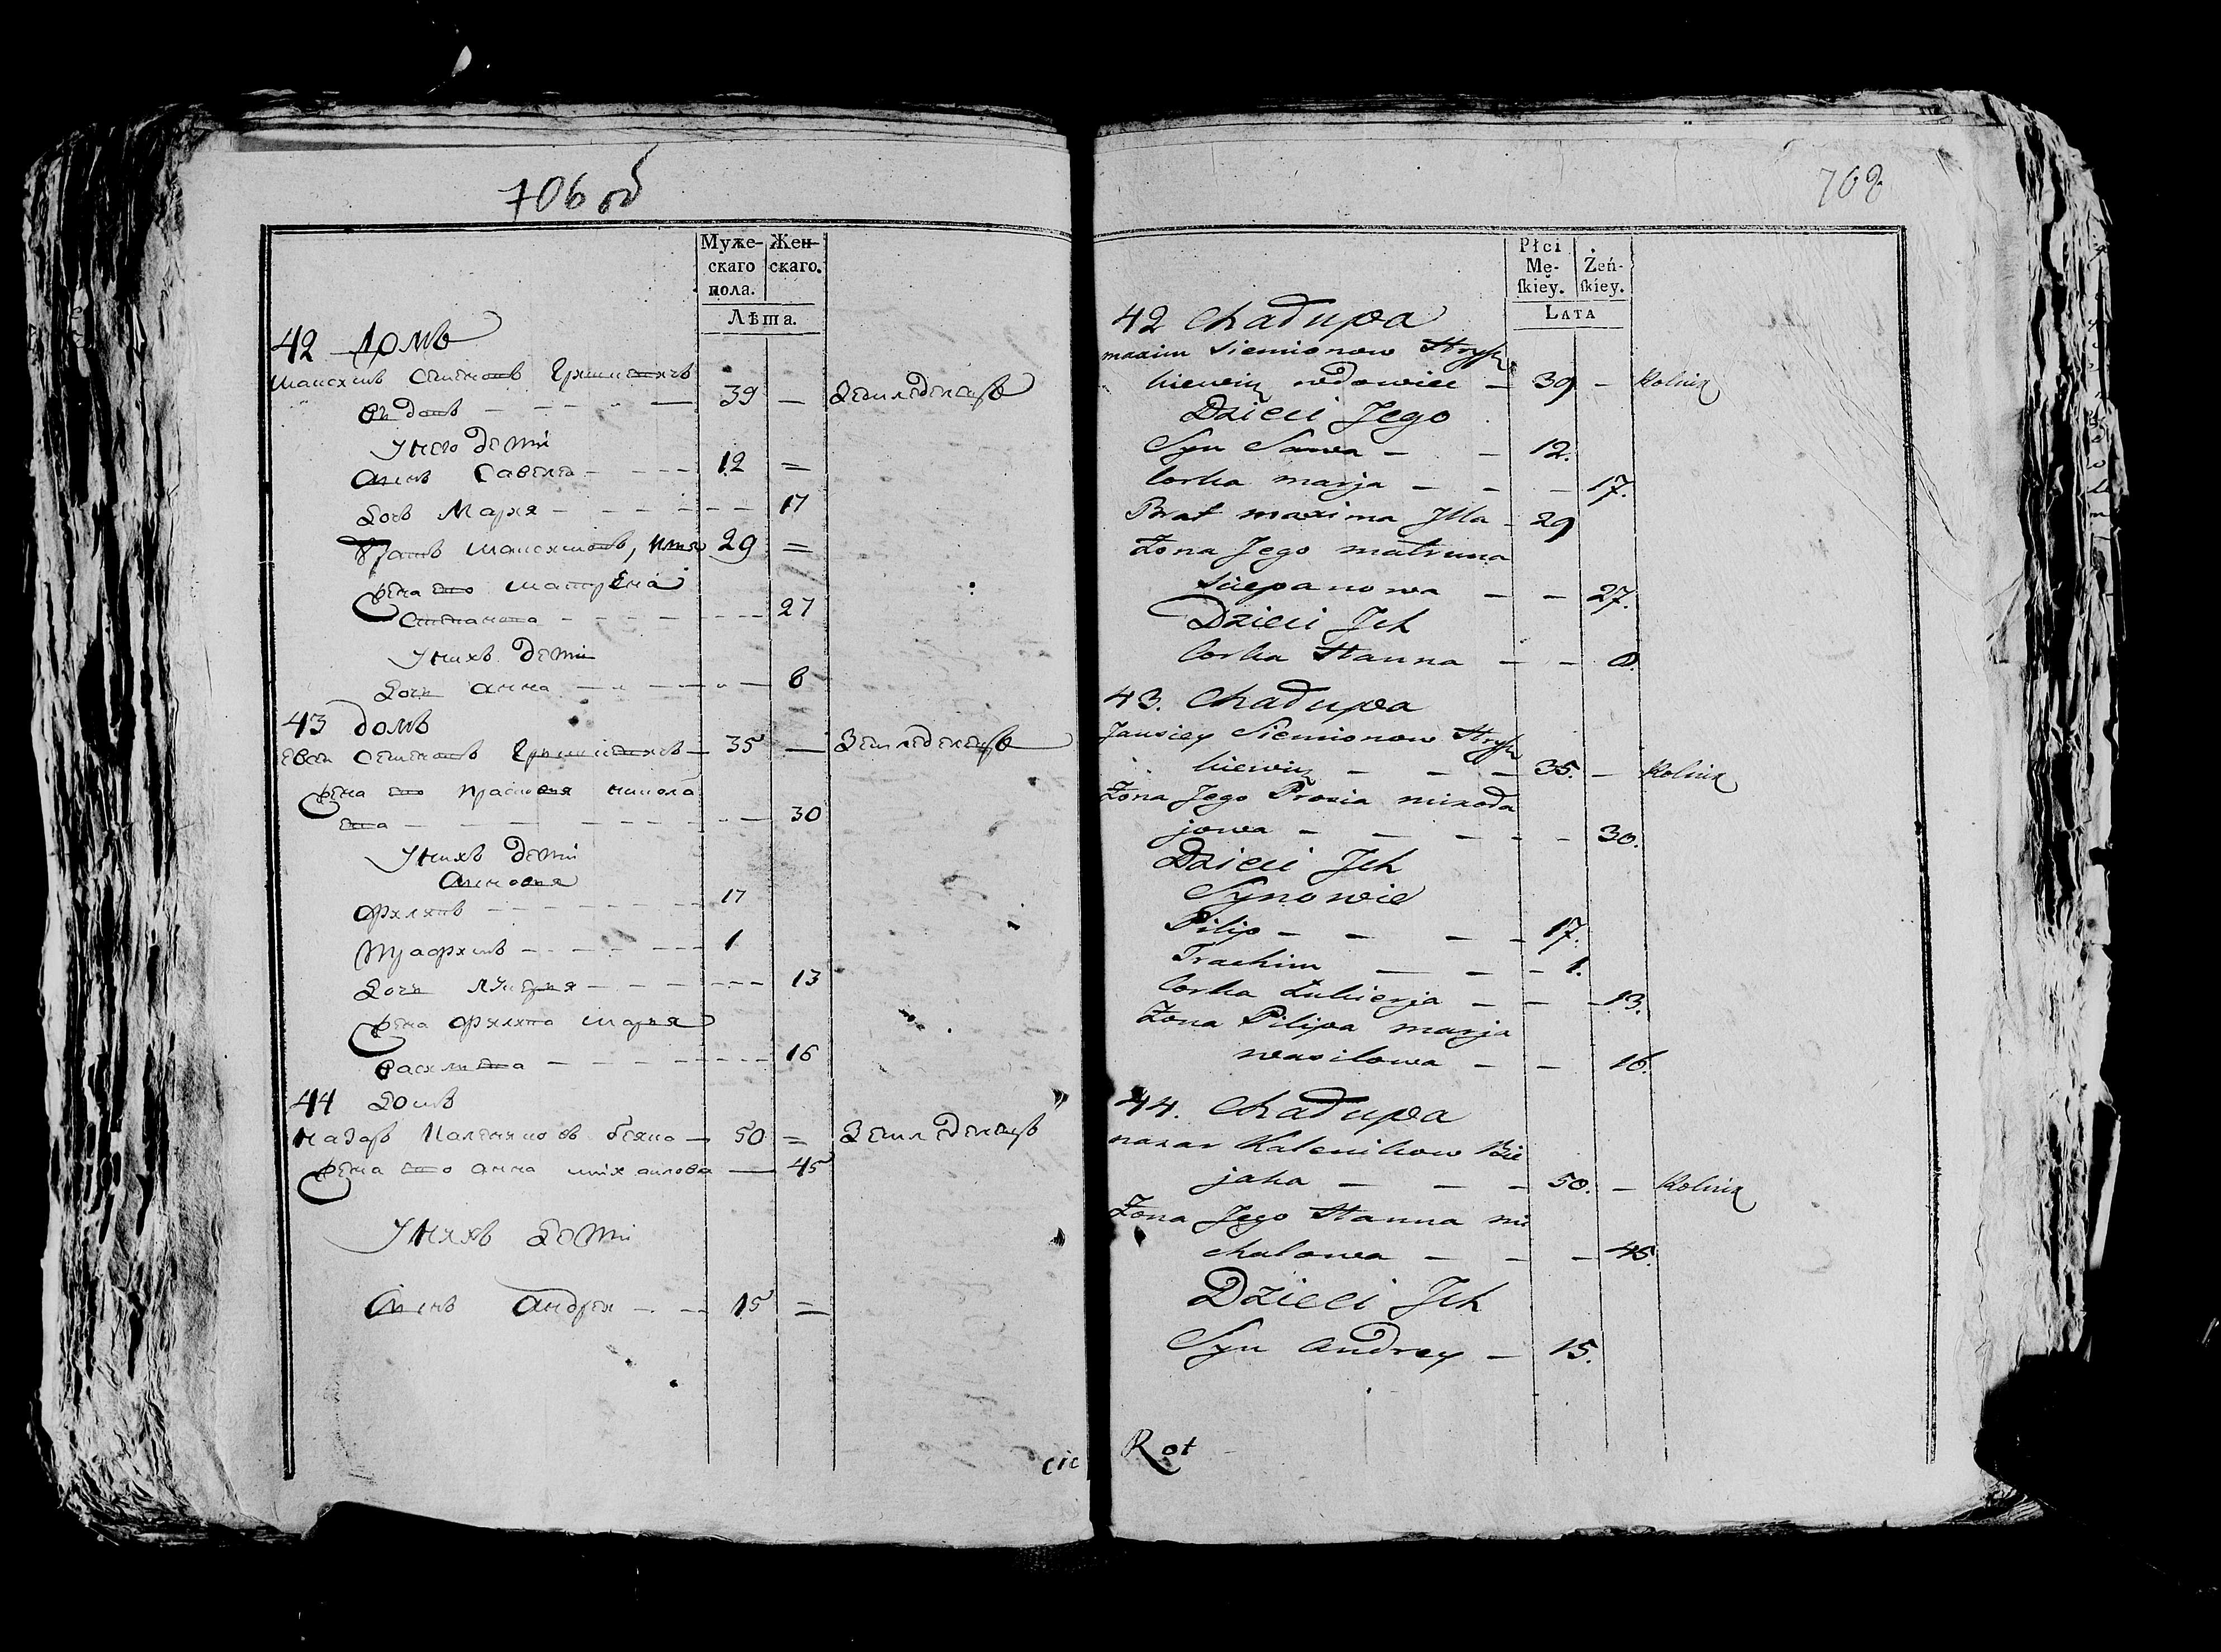 706 об
Муже-
скаго
пола.
Жен-
скаго.
Лѣта.
42 домъ
Максимъ Семеновъ
вдовъ - - - 39 — Земледелецъ
У него дети
Сынъ Савела - - - 12 =
Дочь Мария - - - 17
Братъ Максимовъ, 29 =
Жена его Матрена
Степанова - - - 27
У нихъ дети
Дочи Анна - - - 8
43 домъ
Семеновъ — 35 — Земледелецъ
Жена его Прасковия Никола
ева - - - 30
У нихъ дети
Сыновья
Филипъ - - - 17
Трафимъ - - - 1
Дочи Лукерия - - - 13
Жена Филипа Марья
Василиева - - - 16
44 Домъ
Назаръ Каленикоовъ Беяка — 50 = Земледелецъ
Жена его Анна Михаилова — 45
У нихъ Дети
Сынъ Андреи - - 15 =
cic
708
Płci
Mę-
ſkiey.
Żeń-
ſkiey.
LATA
42 Chałupa
maxim Siemionow Hrysz
kiewicz wdowiec — 39 — Rolnik
Dzieci Jego
Syn Sawa — — 12.
Corka marja — — — 17.
Brat maxima Jlla — 29
Żona Jego matruna
Sciepanowa — — 27.
Dzieci Jch
Corka Hanna — — 8.
43. Chałupa
Siemionow Hrysz
kiewicz — — — 35. — Rolnik
Żona Jego Prosia mikoła
jowa — — — — 30.
Dzieci Jch
Synowie
Pilip — — — 17.
Trachim — — — 1.
Corka Łukierja — — — 13.
Żona Pilipa marja
wasilowa — — 16.
44. Chałupa
nazar Kalenikow Bie
jaka — — — 50. — Rolnik
Żona Jego Hanna mi
chałowa — — — 45.
Dzieci Jch
Syn Andrey — 15.
Rot